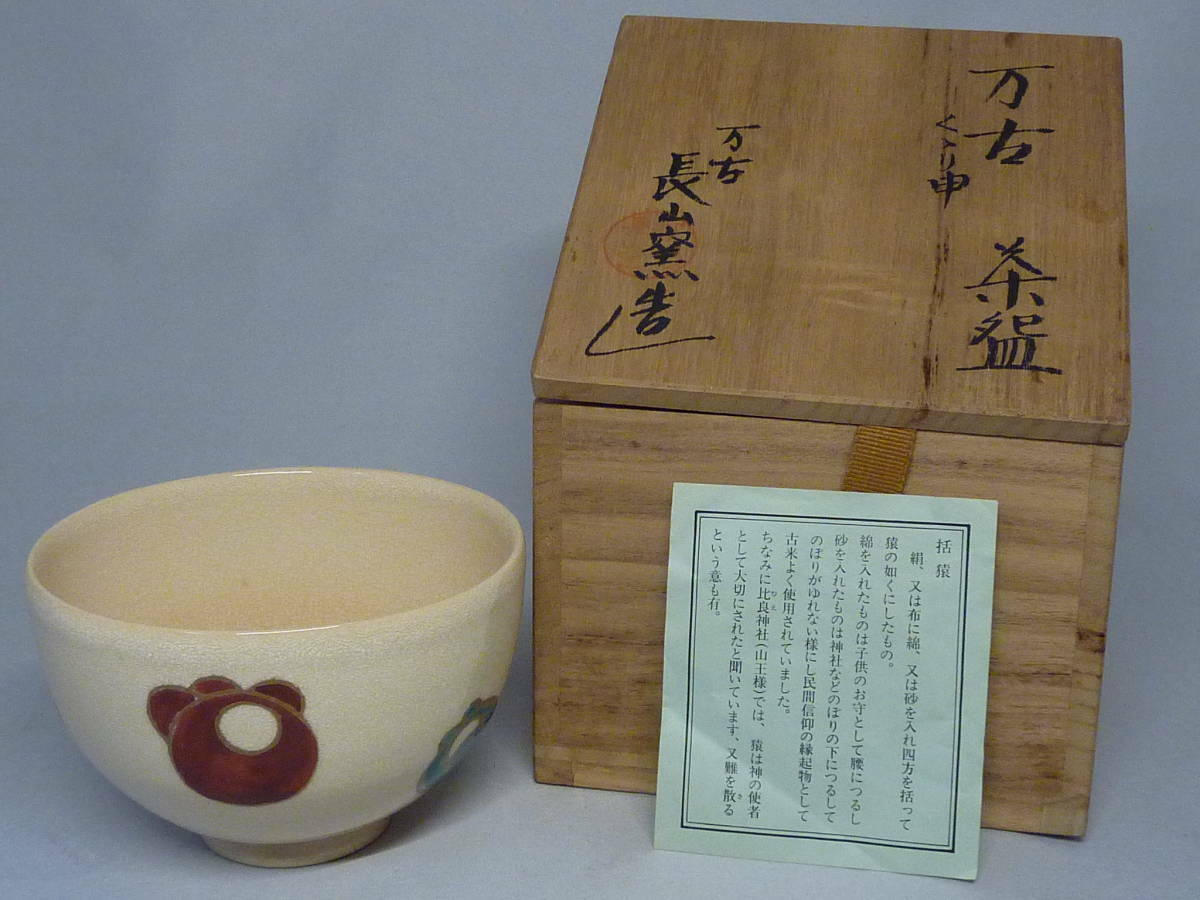 万古 茶盌
くゝり申
万古
長山窯造
括猿
絹、又は布に綿、又は砂を入れ四方を括って
猿の如くにしたもの。
綿を入れたものは子供のお守として腰につるし
砂を入れたものは神社などのぼりの下につるして
のぼりがゆれない様にし民間信仰の縁起物として
古来よく使用されていました。
ちなみに比良神社(山王様)では、猿は神の使者
として大切にされたと聞いています、又難を散る
という意も有。